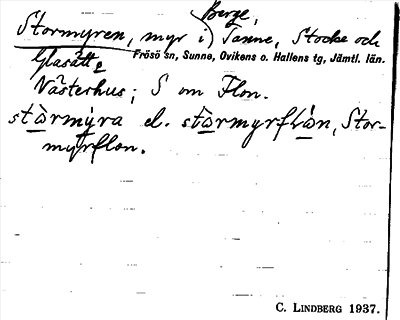 Berge,
Stormyren, myr i Tanne, Stocke och
Glasätt o
Frösö sn, Sunne, Ovikens o. Hallens tg, Jämtl. län.
Västerhus; S om Flon.
stòrmỳra el. stòrmyrflòn, Stor-
myrflon.
C. LINDBERG 1937.